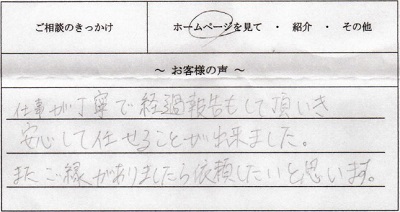 ご相談のきっかけ
ホームページを見て ・ 紹介 ・ その他
～ お客様の声 ～
仕事が丁寧で経過報告もして頂いき
安心して任せることが出来ました。
また ご縁がありましたら依頼したいと思います。